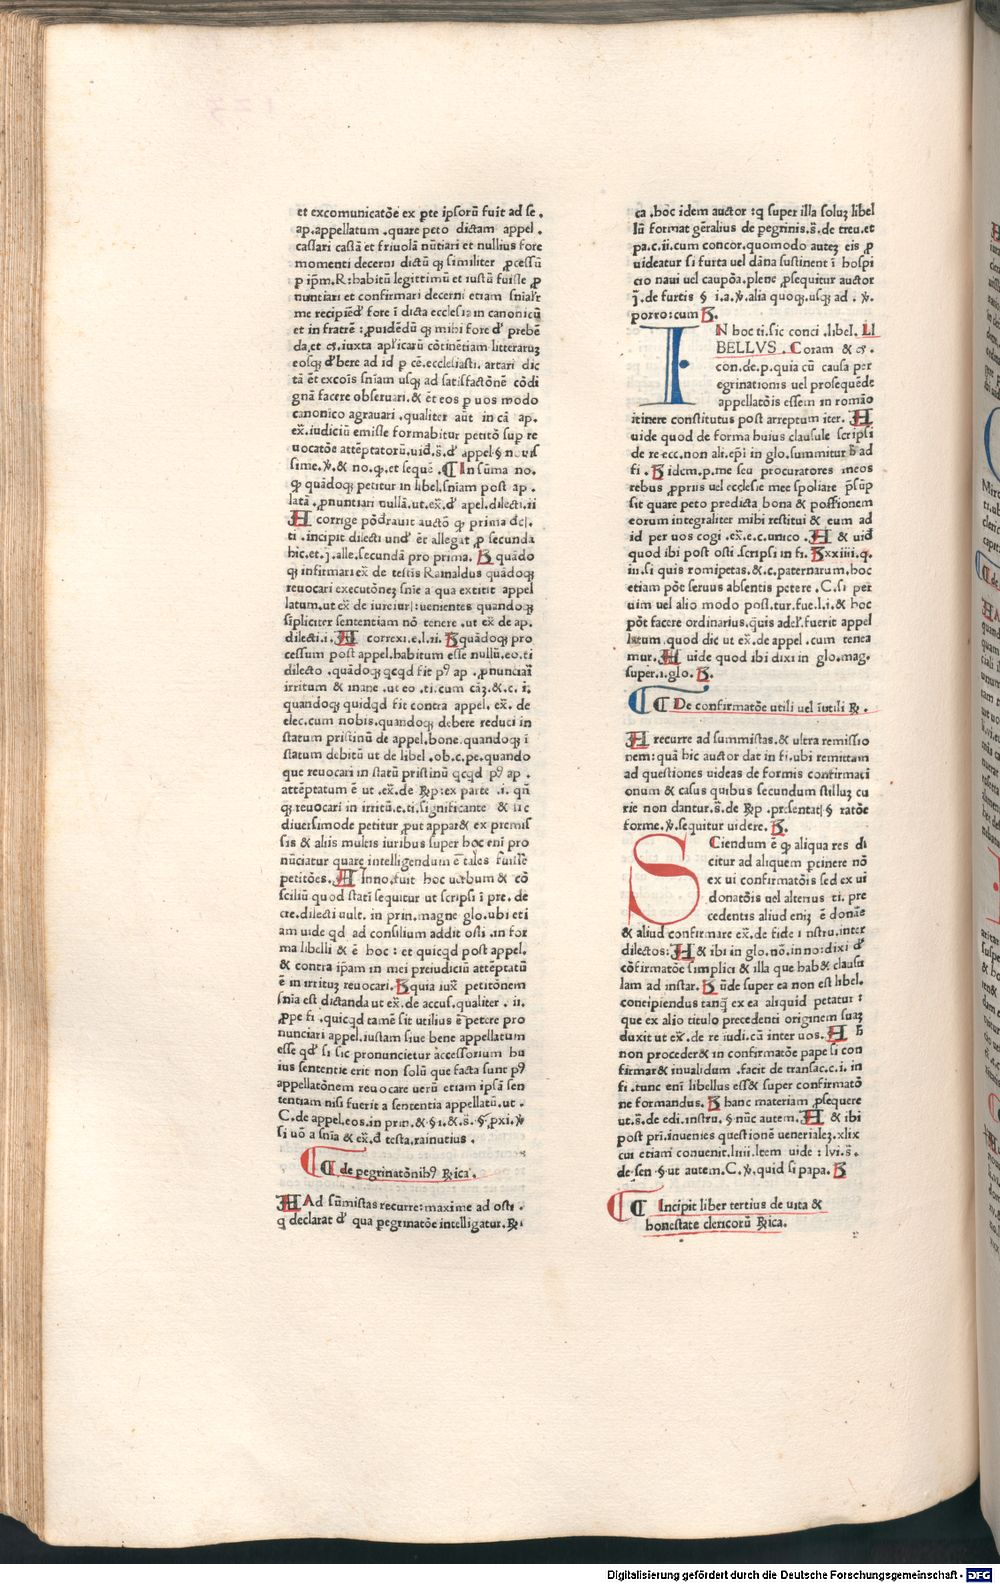 et excomunicatōe ex ꝑte ipsorū fuit ad se .
ap.appellatum .quare peto dictam appel .
cassari cassā et friuolā nūtiari et nullius fore
momenti decerni dictū qꝫ similiter ꝓcessū
ꝑ ipm̄.R:habitū legittimū et iustū fuisse ꝓ
nuntiari et confirmari decerni etiam
me fore ī dicta ecclesia in canonicū
et in fratrē :ꝓuidēdū qꝫ mihi fore d' prebē
da.et iuxta cōtinētiam litteraruꝫ
eosqꝫ d'bere ad id ꝑ cē.ecclesiasti. artari dic
tā ēt excoīs snīam usqꝫ ad satisfactōnē cōdi
gnā facere obseruari.& ēt eos ꝑ uos modo
canonico agrauari .qualiter aūt in cā ap.
ex̄.iudiciū emisse formabitur petitō sup re
uocatōe attēptatorū.uid.s̄.d' appel.§ nouis
sime.℣.& no.ꝙ.et sequē .¶In sūma no.
ꝙ quādoqꝫ petitur in libel.snīam post ap.
latā .ꝓnuntiari nullā.ut.ex̄.d' apel.dilecti.ii
A corrige pōdrauit auctō ꝙ prima del.
ti .incipit dilecti und' ēt allegat ꝓ secunda
hic.et.j.alle.secundā pro prima. B quādo
qꝫ infirmari ex̄ de testīs Rainaldus quādoqꝫ
reuocari executōneꝫ snīe a qua extitit appel
latum.ut ex̄ de uenientes quandoqꝫ
sīpliciter sententiam nō tenere .ut ex̄ de ap.
dilecti.i. A correxi.e.l.ii. B quādoqꝫ pro
cessum post appel.habitum esse nullū.eo.ti
dilecto .quādoqꝫ qcqd fit p9 ap .ꝓnunciari
irritum & inane .ut eo .ti.cum & c. ī.
quandoqꝫ quidqd fit contra appel. ex̄. de
elec.cum nobis.quandoqꝫ debere reduci in
statum pristinū de appel.bone.quandoqꝫ ī
statum debitū ut de libel .ob.c.pe.quando
que reuocari in statū pristinū qcqd p9 ap .
attēptatum ē ut .ex̄.de ℞p:ex parte .i. qn̄
qꝫ reuocari in irritū.e.ti.significante & sic
diuersimode petitur ꝓut appar& ex premis
sis & aliis multis iuribus super hoc enī pro
nūciatur quare intelligendum ē tales fuisse
petitōes. A Inno.fuit hoc uerbum & cō
siliū quod stati sequitur ut scripsi ī pre. de
cre.dilecti uult. in prin. magne glo.ubi eti
am uide qd ad consilium addit osti .in for
ma libelli & ē hoc : et quicqd post appel.
& contra ip̄am in mei preiudiciū attēptatū
ē in irrituꝫ reuocari. B quia iux̄ petitōnem
snīa est dictanda ut ex̄. de accus.qualiter . ii.
ꝓpe fi .quicqd tamē sit utilius ē petere pro
nunciari appel.iustam siue bene appellatum
esse qd' si sic pronuncietur accessorium hu
ius sententie erit non solū que facta sunt p9
appellatōnem reuocare uerū etiam ipsā sen
tentiam nisi fuerit a sententia appellatū.ut .
C.de appel.eos.in prin.& §1.& s̄. §.ꝓxi.℣
si uō a snīa & ex̄.d testa.rainutius .
¶ de pegrinatōnib9 ℞ica .
A Ad sūmistas recurre:maxime ad osti .
q declarat d' qua pegrinatōe intelligatur.℞ı
ca .hoc idem auctor :q super illa soluꝫ libel
lū format gēralius de pegrinis.s̄.de treu.et
pa.c.ii.cum concor.quomodo auteꝫ eis ꝓ
uideatur si furta uel dāna sustinent ī hospi
cio naui uel caupōa.plene ꝓsequitur auctor
j̄.de furtis § i.a.℣.alia quoqꝫ.usqꝫ ad . ℣.
porro:cum B.
IN hoc ti.sic conci .libel. LI
BELLVS . Coram & .
con.de.p.quia cū causa per
egrinationis uel prosequēde
appellatōis essem in romāo
itinere constitutus post arreptum iter. A
uide quod de forma huius clausule scripsi
de re ecc.non ali.ep̄i in glo.summitur h̄ ad
fi . B idem.p.me seu procuratores meos
rebus ꝓpriis uel ecclesie mee spoliare p̄sūp
sit quare peto predicta bona & possionem
eorum integraliter mihi restitui & eum ad
id per uos cogi .ex̄.e.c.unico . A & uid
quod ibi post osti .scripsi in fi. B xxiiii.q.
iii.si quis romipetas.&.c.paternarum.hoc
etiam pōt seruus absentis petere .C.si per
uim uel alio modo post.tur.fue.l.i.& hoc
pōt facere ordinarius.quis fuerit appel
latum.quod dic ut ex̄.de appel .cum tenea
mur. A uide quod ibi dixi in glo.mag.
super.i.glo. B.
¶ De confirmatōe utili uel īutili ℞ .
A recurre ad summistas.& ultra remissio
nem:quā hic auctor dat in fi.ubi remittam
ad questiones uideas de formis confirmati
onum & casus quibus secundum stilluꝫ cu
rie non dantur.s̄.de ℞p .presentat § ratōe
forme.℣.sequitur uidere. B.
SCiendum ē ꝙ aliqua res di
citur ad aliquem ꝑtinere nō
ex ui confirmatōis sed ex ui
donatōis uel alterius ti. pre
cedentis aliud enīꝫ ē donāe
& aliud confirmare ex̄.de fide īnstru.inter
dilectos: A & ibi in glo.nō.in no:dixi d'
cōfirmatōe simplici & illa que hab& clausu
lam ad instar. B ūde super ea non est libel.
concipiendus tanꝗ ex ea aliquid petatur :
que ex alio titulo precedenti originem suaꝫ
duxit ut ex̄. de re iudi.cā inter uos. A h̄
non proceder& in confirmatōe pape si con
firmar& inualidum .facit de transac.c.i. in
fi .tunc enī libellus ess& super confirmatō
ne formandus. B hanc materiam ꝓsequere
ut.s̄.de edi.instru. § nūc autem. A & ibi
post pri.inuenies questionē uenerialeꝫ.xlix
cui etiam conuenit.liiii.Item uide : lvi.s̄.
de.sen .§.ut autem.C.℣.quid si papa. B
¶ Incipit liber tertius de uita &
honestate clericorū ℞ica.
Digitalisierung gefördert durch die Deutsche Forschungsgemeinschaft - DFG